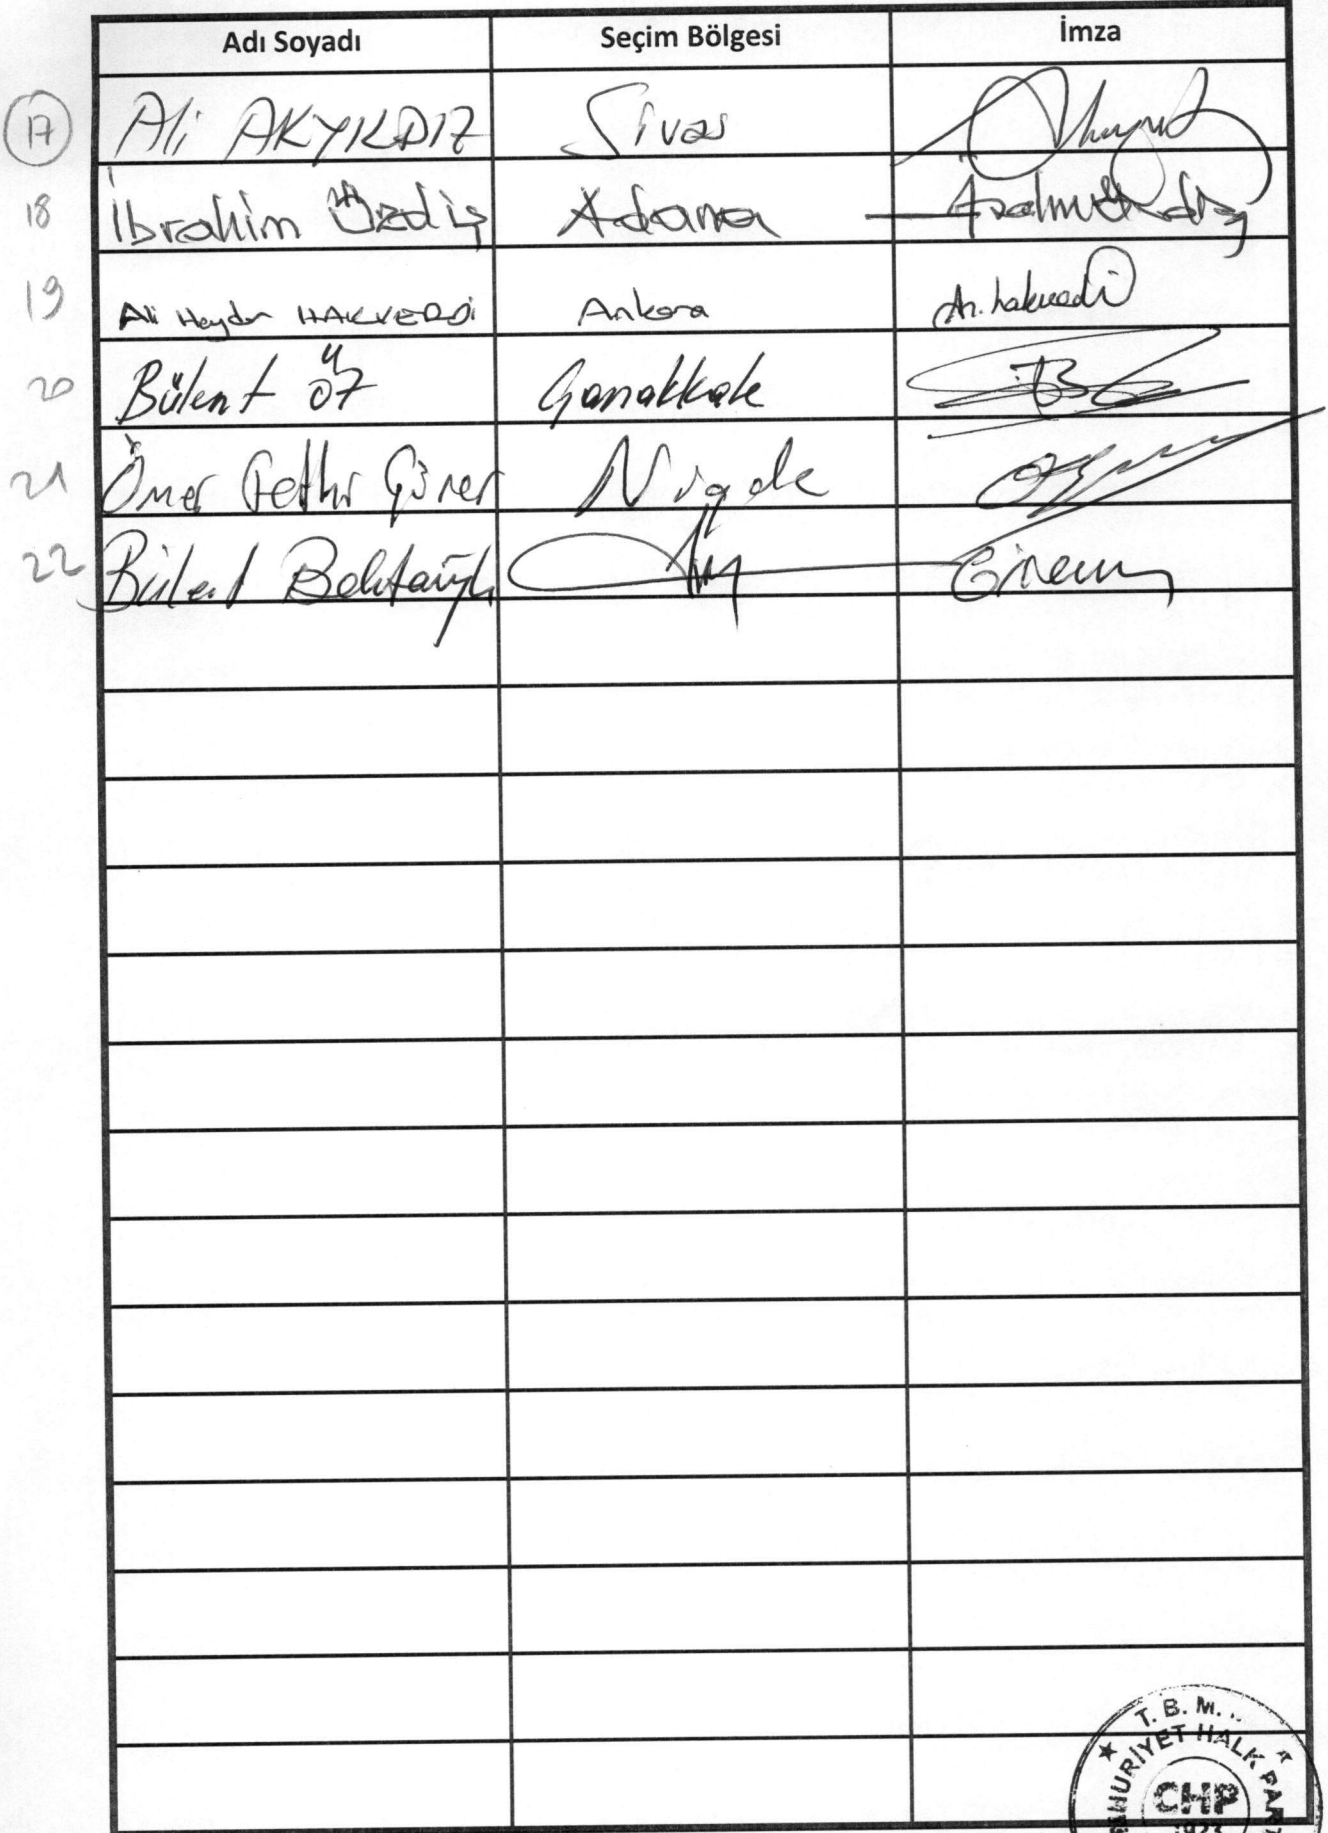 Adı Soyadı Seçim Bölgesi İmza
17 Ali AKYILDIZ Sivas
18 İbrahim Özdiş Adana
19 Ali Haydar HAKVERDİ Ankara Ah. hakverdi
20 Bülent ÖZ Çanakkale
21 Ömer Fethi Gürer Niğde
22 Bülent Bektaşoğlu Giresun
T. B. M.
CUMHURİYET HALK PART
CHP
1923